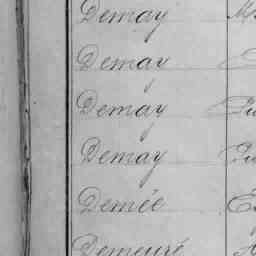 Demay
Demay
Demay
Demay
Demée
Demeuré